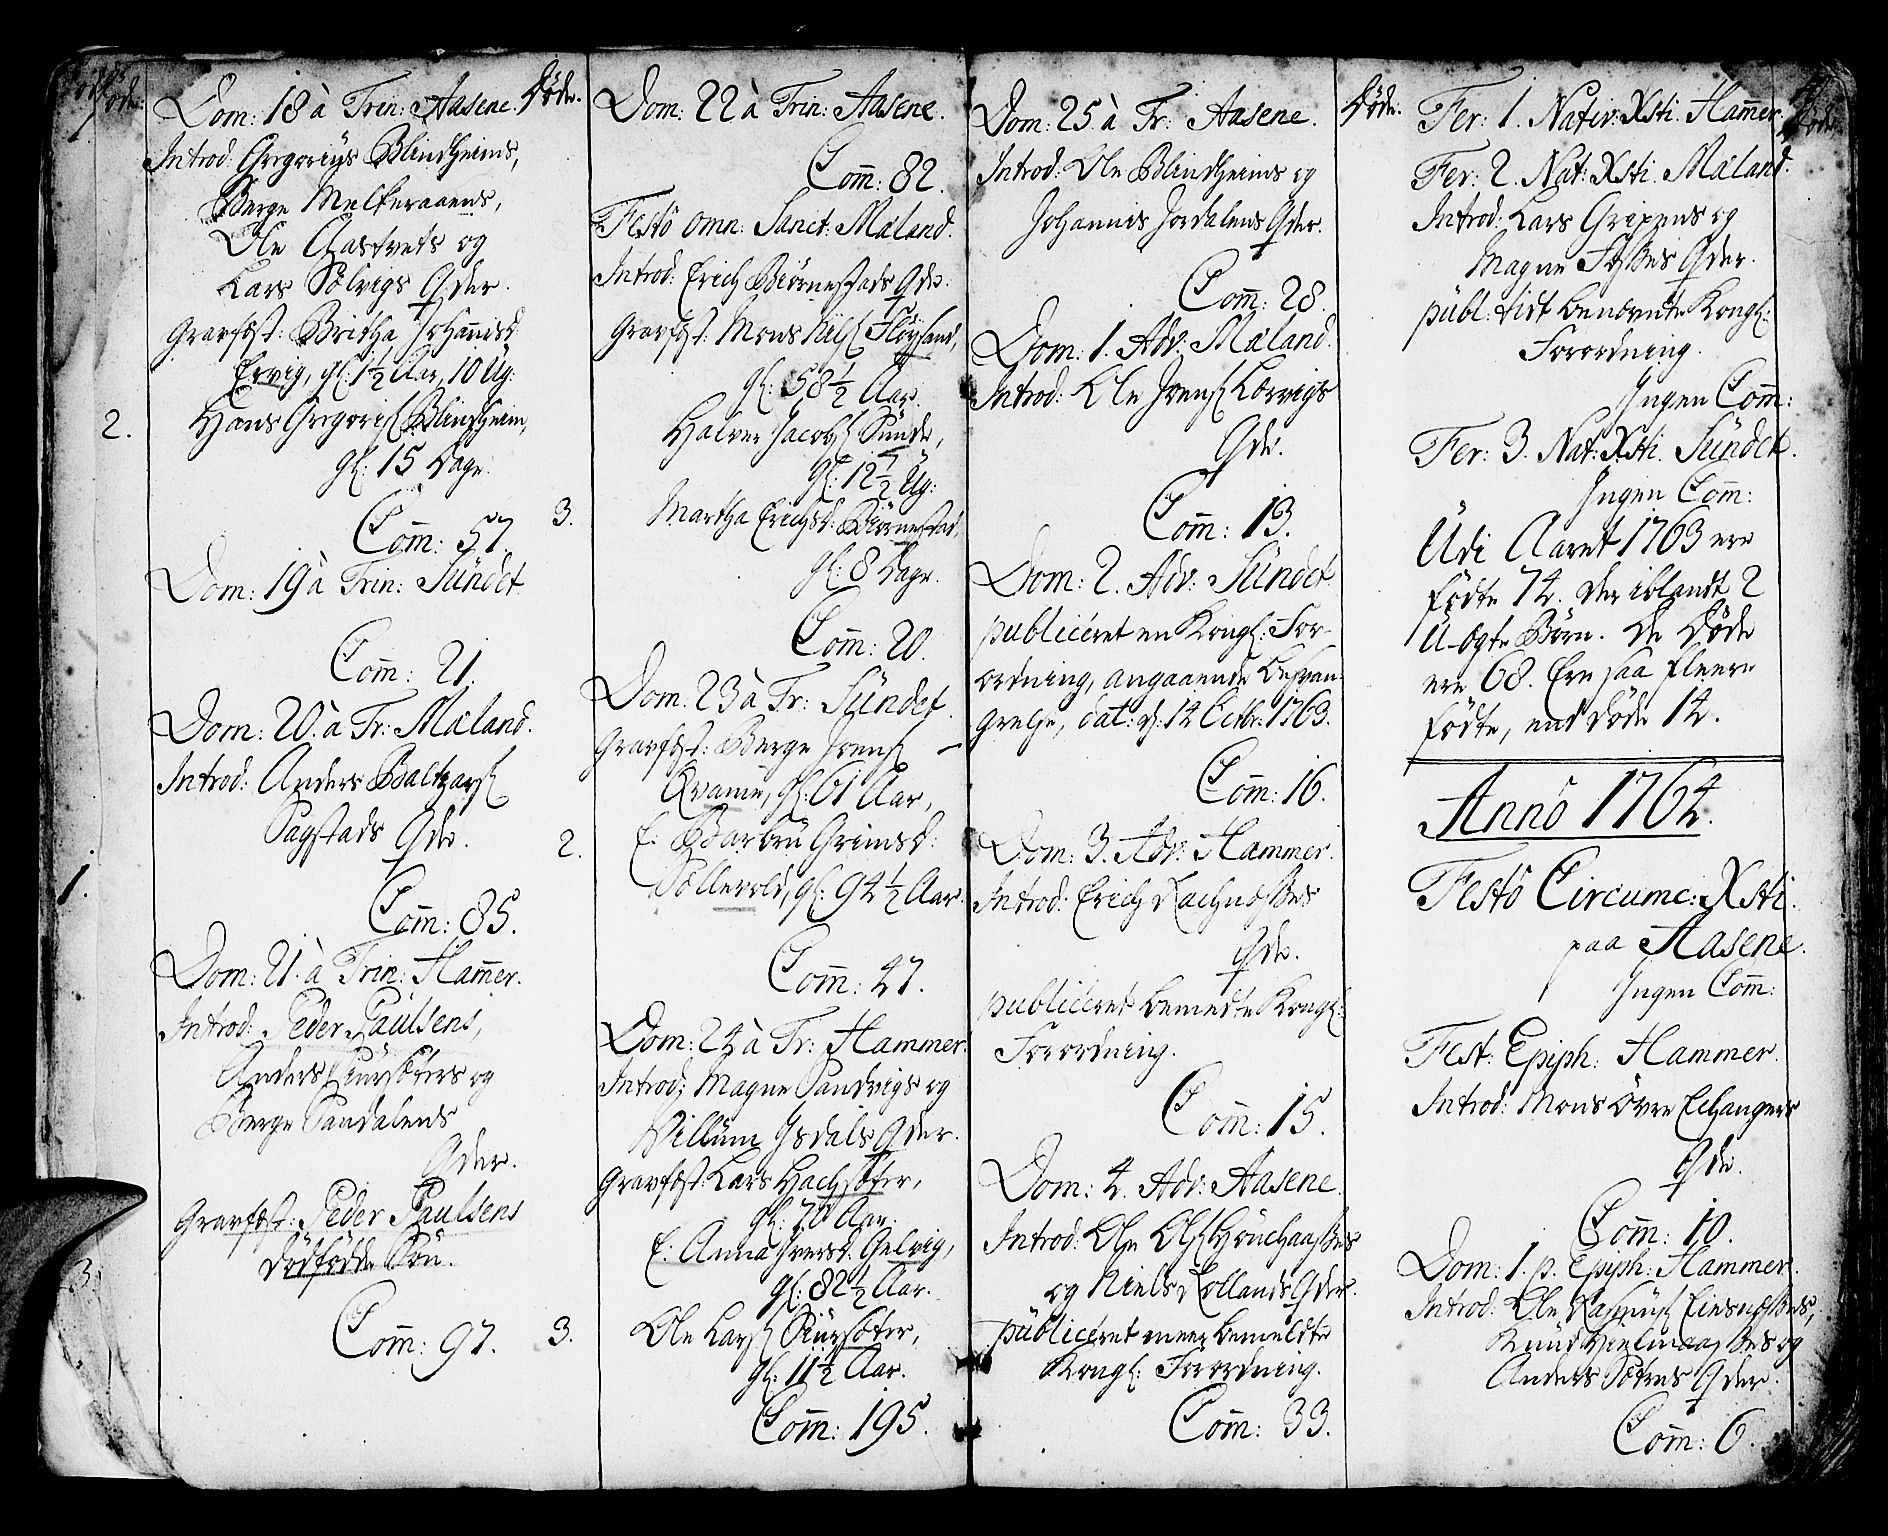 Døde.
Dom: 18 à Trin: Aasene.
Introd: Gregorius Blindheims,
Berge Melkeraaens,
Ole Aastvets og
Lars Sølvigs Qder.
Gravfæst: Britha Johannisd
Ervig, gl: 1½ Aar, 10 Ug:
2.
Hans Gregoris: Blindheim,
gl: 15 Dage.
Com̄: 57.
Dom: 19 à Trin: Sündet
Com̄: 21.
Dom: 20. à Tr: Mæland.
Introd: Anders Baltzars:
Sagstads Qde.
1.
Com̄: 85.
Dom: 21. à Trin: Ham̄er.
Introd: Peder Paulsens,
Anders Kürsøters og
Berge Sandalens
Qder.
Gravfæst: Peder Paulsens
dødfødde Søn.
3.
Com̄: 97.
Døde.
Dom: 22 à Trin: Aasene.
Com̄: 82.
Festo omn: Sanct: Mæland.
Introd: Erich Biørnestads Qde.
Gravfæst: Mons Nils: Fløysand,
gl: 58½ Aar.
Halvor Jacobs: Sünde,
gl: 12½ Üg:
3.
Martha Erichsd: Biørnestad,
gl: 8 Dage.
Com̄: 20.
Dom: 23 à Tr: Sündet.
Gravfæst: Berge Ivers: -
Qvamme, gl: 61 Aar,
2.
E: Barbru Grimsd:
Søllevold, gl: 94½ Aar.
Com̄: 47.
Dom: 24 à Tr: Hammer.
Introd: Magne Sandvigs og
Villum Isdals Qder.
Gravfæst: Lars Hachsøter,
gl: 70 Aar.
E: Anna Iversd: Gelvig,
gl: 82½ Aar.
3.
Ole Lars: Kürsøter,
gl: 11½ Aar.
Com̄: 195.
Dom: 25 à Tr: Aasene.
Introd: Ole Blindheims og
Johannis Jordalens Qder.
Com̄: 28.
Dom: 1. Adv: Mæland.
Introd: Ole Ivers: Lervigs
Qde.
Com̄: 13.
Dom: 2. Adv: Sündet
publiceret en Kongl: For-
ordning, angaaende Besvan-
grelse, dat: d: 14 Octbr: 1763.
Com̄: 16.
Dom: 3. Adv: Hammer.
Introd: Erich
Qde.
publiceret bemeldte Kongl:
Forordning.
Com̄: 15.
Dom: 4. Adv: Aasene.
Introd: Ole Ols:
og Niels Rollands Qder.
püliceret meer bemeldte
Kongl: Forordning.
Com̄: 33.
Døde.
Fer: 1. Nativ: Xsti. Ham̄er.
Fer: 2. Nat: Xsti. Mæland.
Introd: Lars Gripens og
Magne Fosses Qder.
publ: tidt benævnte Kongl:
Forordning.
Ingen Com̄:
Fer: 3. Nat: Xsti. Sündet.
Ingen Com̄:
Üdi Aaret 1763 ere
fødte 74. der iblandt 2
U-ægte Børn. De Døde
ere 68. Ere saa fleere
fødte, end døde 14.
Anno 1764.
Festo Circumc: Xsti.
paa Aasene.
Ingen Com̄:
Fest: Epiph: Hammer.
Introd: Mons Øvre Echangers
Qde.
Com̄: 10.
Dom: 1. p. Epiph: Hammer.
Introd: Ole Rasmus:
Knud og
Anders Søtres Qder.
Com̄: 6.